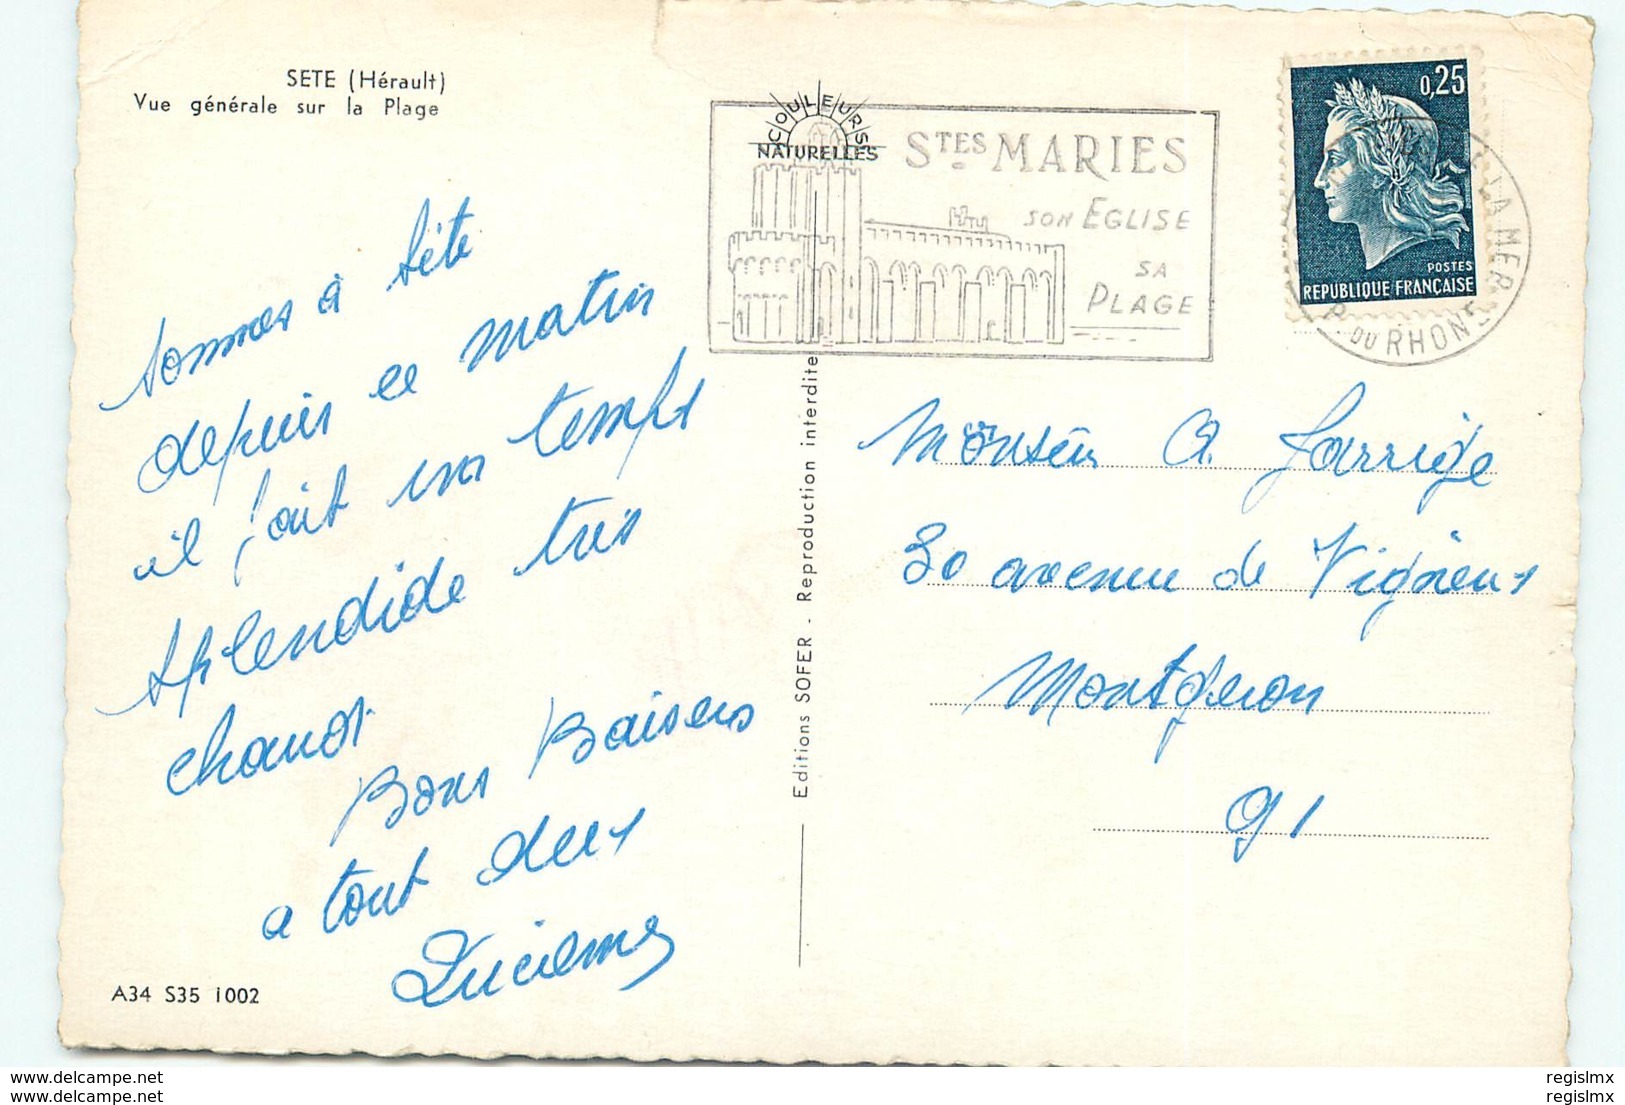 SETE (Hérault)
Vue générale sur la Plage
COULEURS
NATURELLES
STES MARIES
SON EGLISE
SA
PLAGE
0,25
POSTES
REPUBLIQUE FRANÇAISE
LA MER
DU RHONE
sommes à Sète
depuis ce matin
il fait un temps
splendide très
chaud
Bons Baisers
a tout deux
Lucienne
Monsieur A. Jarrige
30 avenue de Vigneux
Montgeron
91
Editions SOFER - Reproduction interdite
A34 S35 1002
www.delcampe.net
www.delcampe.net
regislmx
regislmx